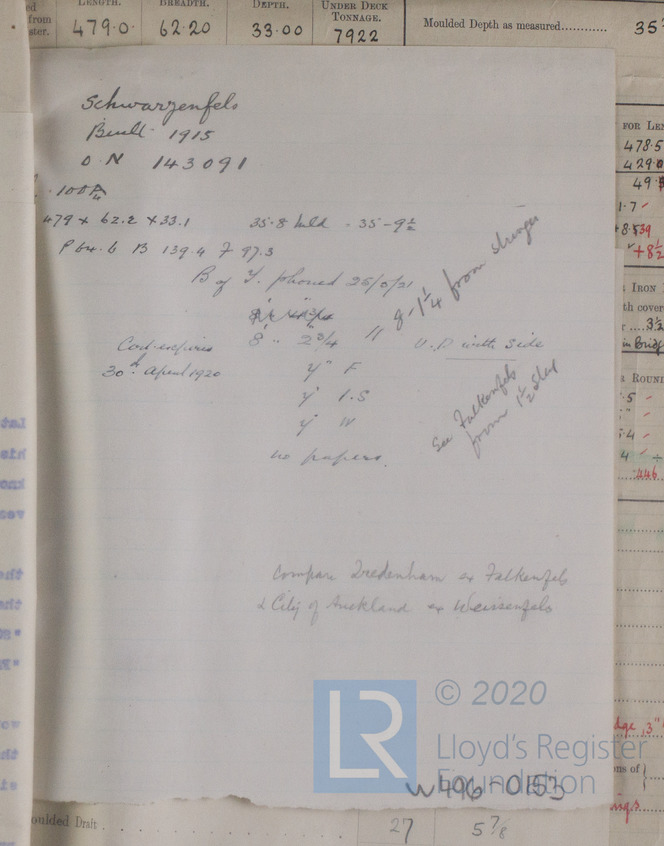 LENGTH. BREADTH. DEPTH. UNDER DECK TONNAGE.
479.0. 62.20 33.00 7922
Moulded Depth as measured............ 35
from
ster.
Schwarzenfels
Built 1915
O.N 143091
.100A
479 x 62.2 x 33.1 35.8 mld - 35-9½
P 64.6 B 139.4 F 97.3
B of T. phoned 25/
8 " 2¾ " U.D with side
8-1¼ from stringer
Cert expires
30th April 1920
4" F
4" I.S
4" W
See Falkenfels
from 1½
no papers.
compare Tredenham ex Falkenfels
& City of Auckland ex Weissenfels
FOR LEN
478.5
429.0
49.
1.7
8.539
+8½
IRON
th cover
3½
in Bridg
ROUND
.5
.4
4
446
dge, 3"
ns of
ings
LR
© 2020
Lloyd's Register
Foundation
W496-0153
oulded Draft 27 5⅞